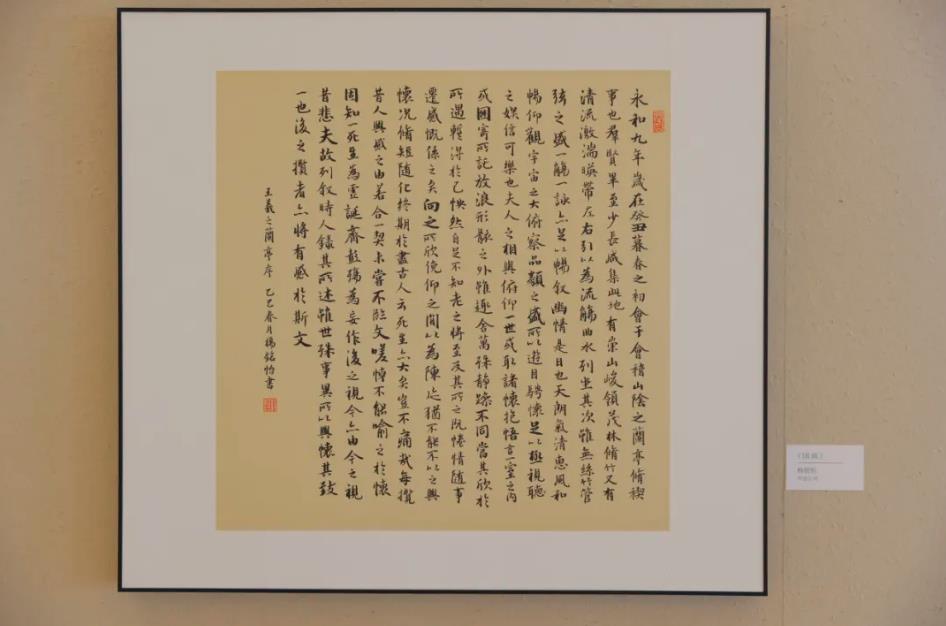 永和九年歲在癸丑暮春之初會于會稽山陰之蘭亭脩禊
事也羣賢畢至少長咸集此地有崇山峻領茂林脩竹又有
清流激湍暎帶左右引以為流觴曲水列坐其次雖無絲竹管
弦之盛一觴一詠亦足以暢叙幽情是日也天朗氣清惠風和
暢仰觀宇宙之大俯察品類之盛所以遊目騁懷足以極視聽
之娛信可樂也夫人之相與俯仰一世或取諸懷抱悟言一室之内
或因寄所託放浪形骸之外雖趣舍萬殊靜躁不同當其欣於
所遇蹔得於己怏然自足不知老之將至及其所之既惓情隨事
遷感慨係之矣向之所欣俛仰之間以為陳迹猶不能不以之興
懷況脩短隨化終期於盡古人云死生亦大矣豈不痛哉每攬
昔人興感之由若合一契未嘗不臨文嗟悼不能喻之於懷
固知一死生為虛誕齊彭殤為妄作後之視今亦由今之視
昔悲夫故列叙時人錄其所述雖世殊事異所以興懷其致
一也後之攬者亦將有感於斯文
王羲之蘭亭序 乙巳春月楊銘怡書